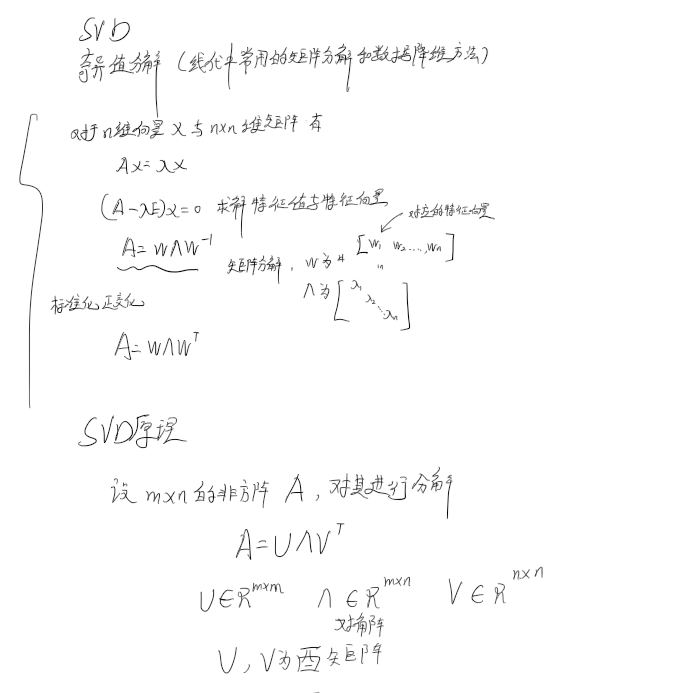 SVD
奇异值分解（线代中常用的矩阵分解和数据降维方法）
对于n维向量 x 与 n×n 维矩阵 有
Ax=λx
(A-λE)x=0 求解特征值与特征向量
对应的特征向量
A=WΛW⁻¹ 矩阵分解，W为 [w₁ w₂…,wₙ]
Λ为 [λ₁ λ₂ ⋱ λₙ]
标准化正交化
A=WΛWᵀ
SVD原理
设 m×n 的非方阵 A，对其进行分解
A=UΛVᵀ
U∈R^{m×m} Λ∈R^{m×n} V∈R^{n×n}
对角阵
U，V为酉矩阵